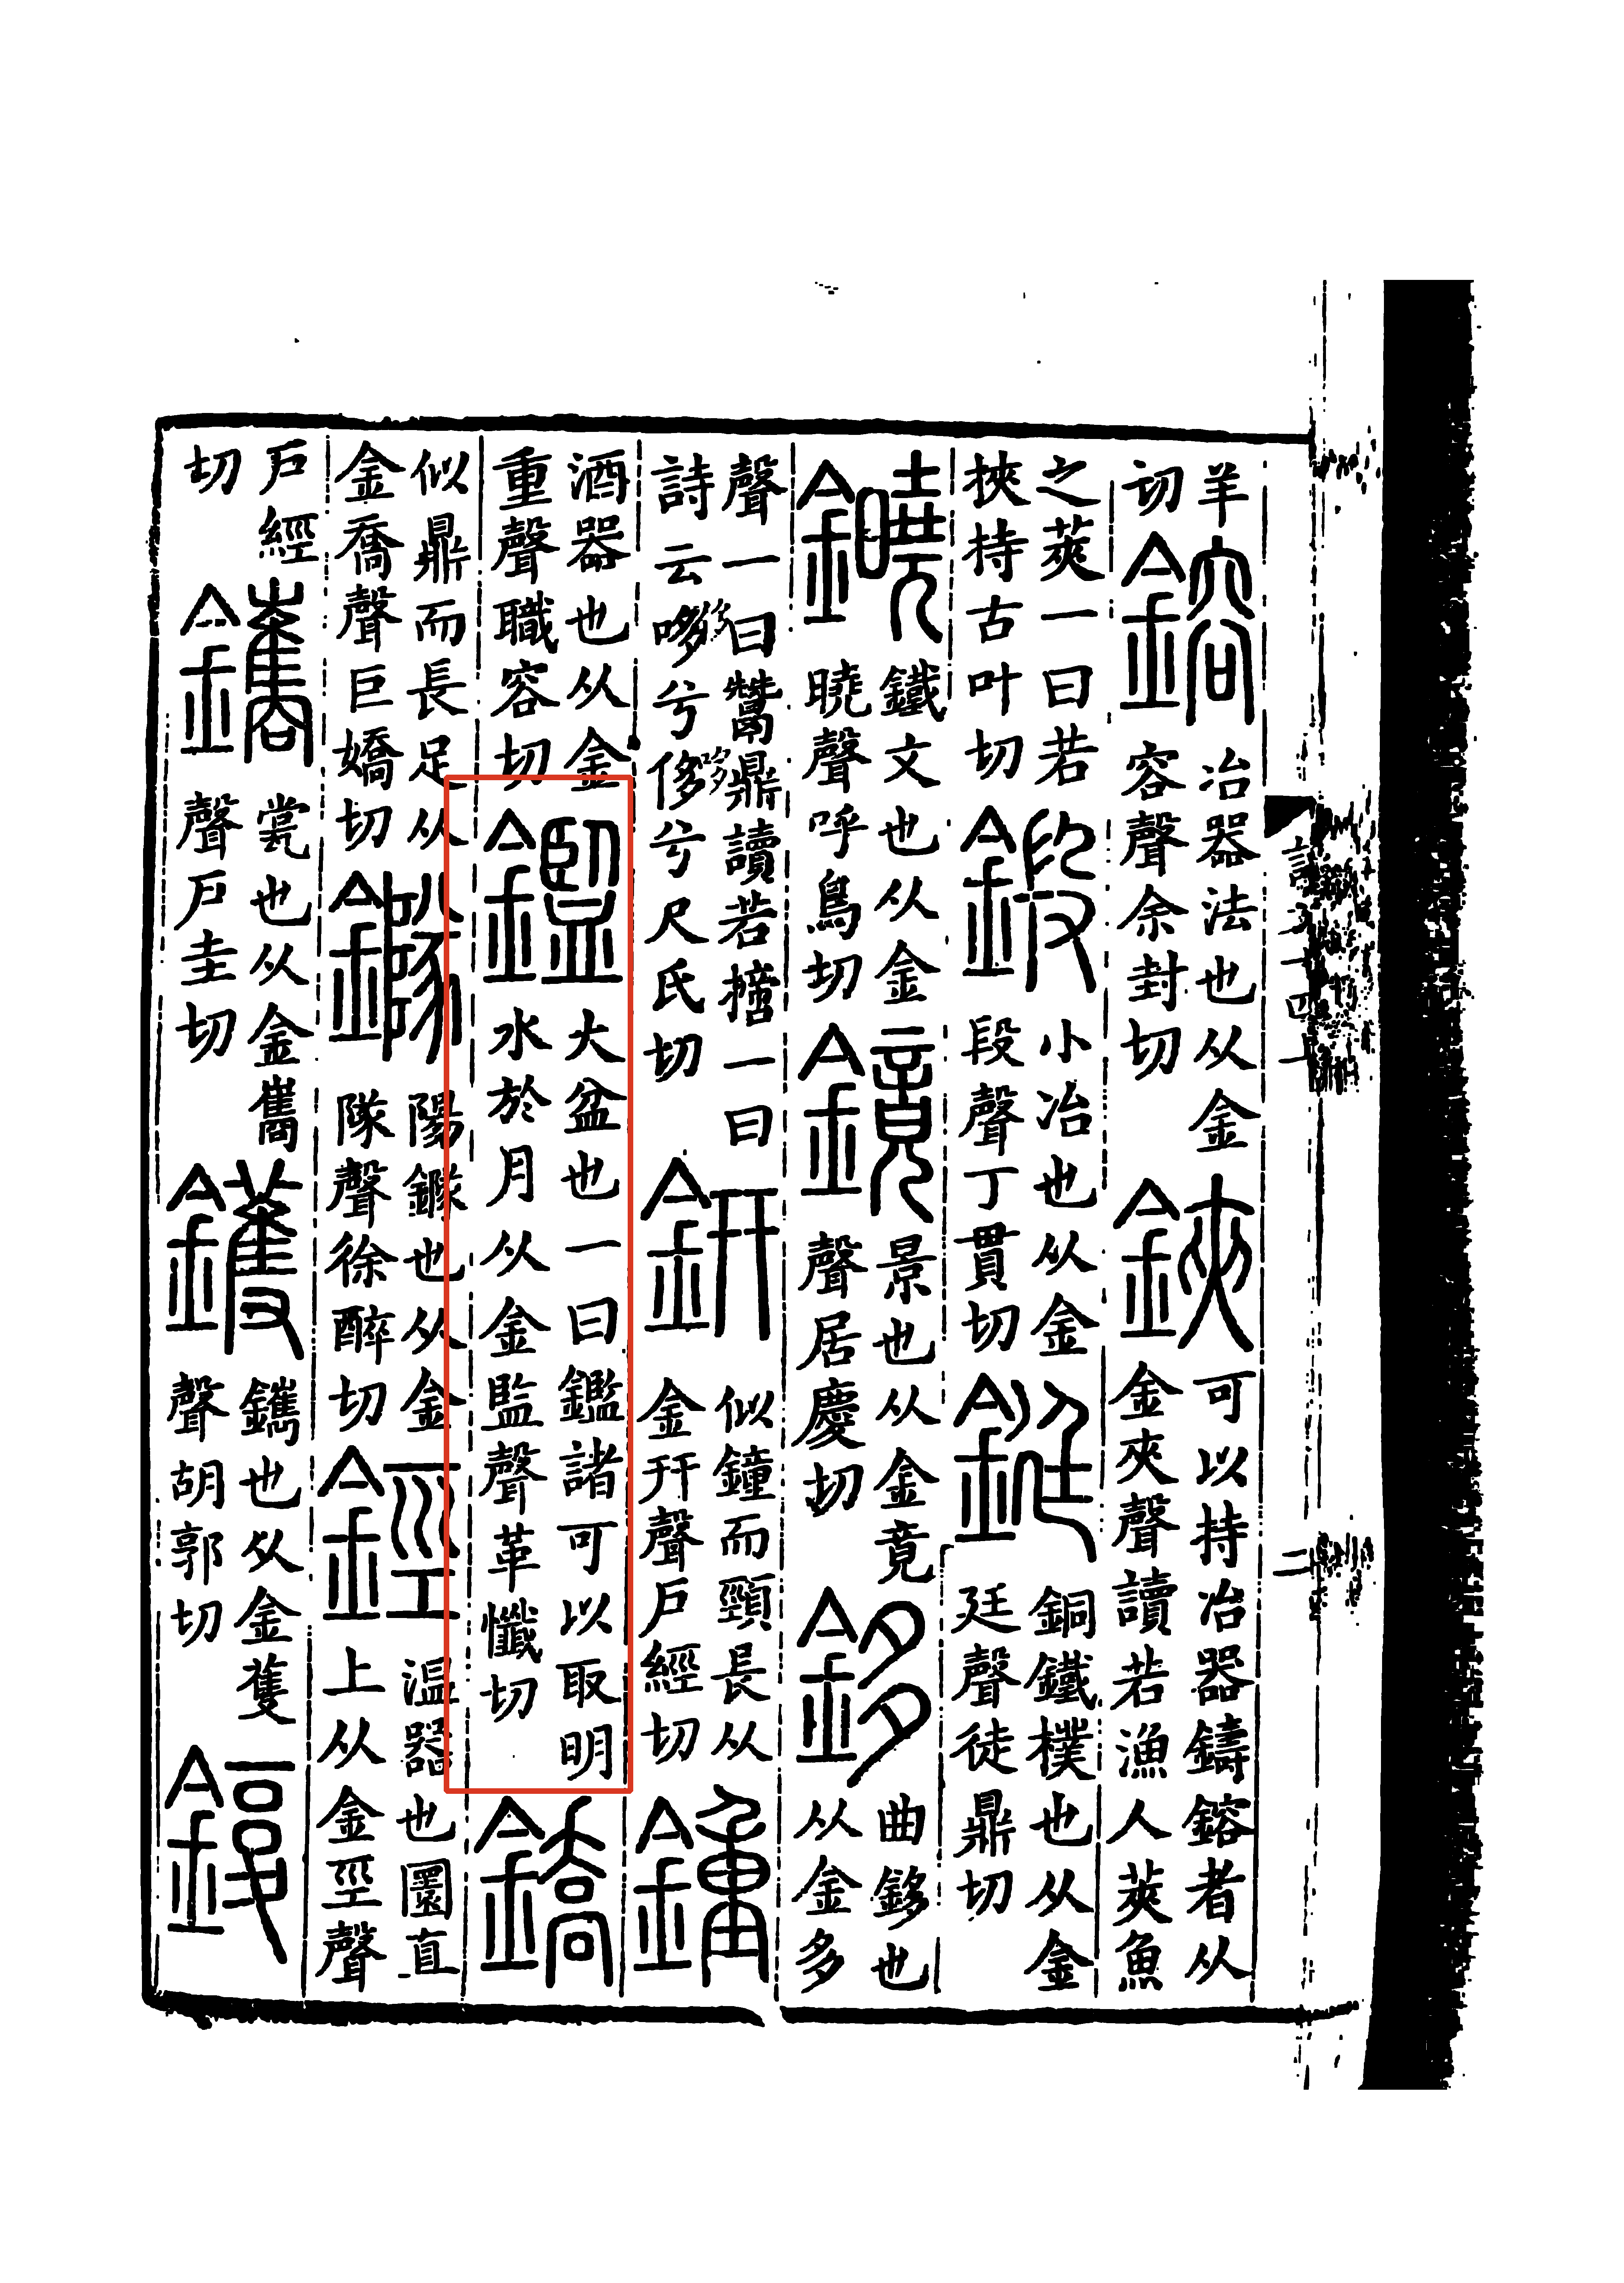 說文十四上
二
羊
切
鎔
冶器法也从金
容聲余封切
鋏
可以持冶器鑄鎔者从
金夾聲讀若漁人莢魚
之莢一曰若
挾持古叶切
鍛
小冶也从金
段聲丁貫切
鋌
銅鐵樸也从金
廷聲徒鼎切
鐵文也从金
曉聲呼鳥切
鏡
景也从金竟
聲居慶切
鉹
曲鉹也
从金多
聲一曰鬵鼎讀若一曰
詩云哆兮侈兮尺氏切
鈃
似鐘而頸長从
金幵聲戶經切
鍾
酒器也从金
重聲職容切
鑑
大盆也一曰鑑諸可以取明
水於月从金監聲革懺切
鐈
似鼎而長足从
金喬聲巨嬌切
鐆
陽鐆也从金
隊聲徐醉切
鋞
温器也圜直
上从金巠聲
戶經
切
鑴
也从金巂
聲戶圭切
鑊
鑴也从金隻
聲胡郭切
鍑